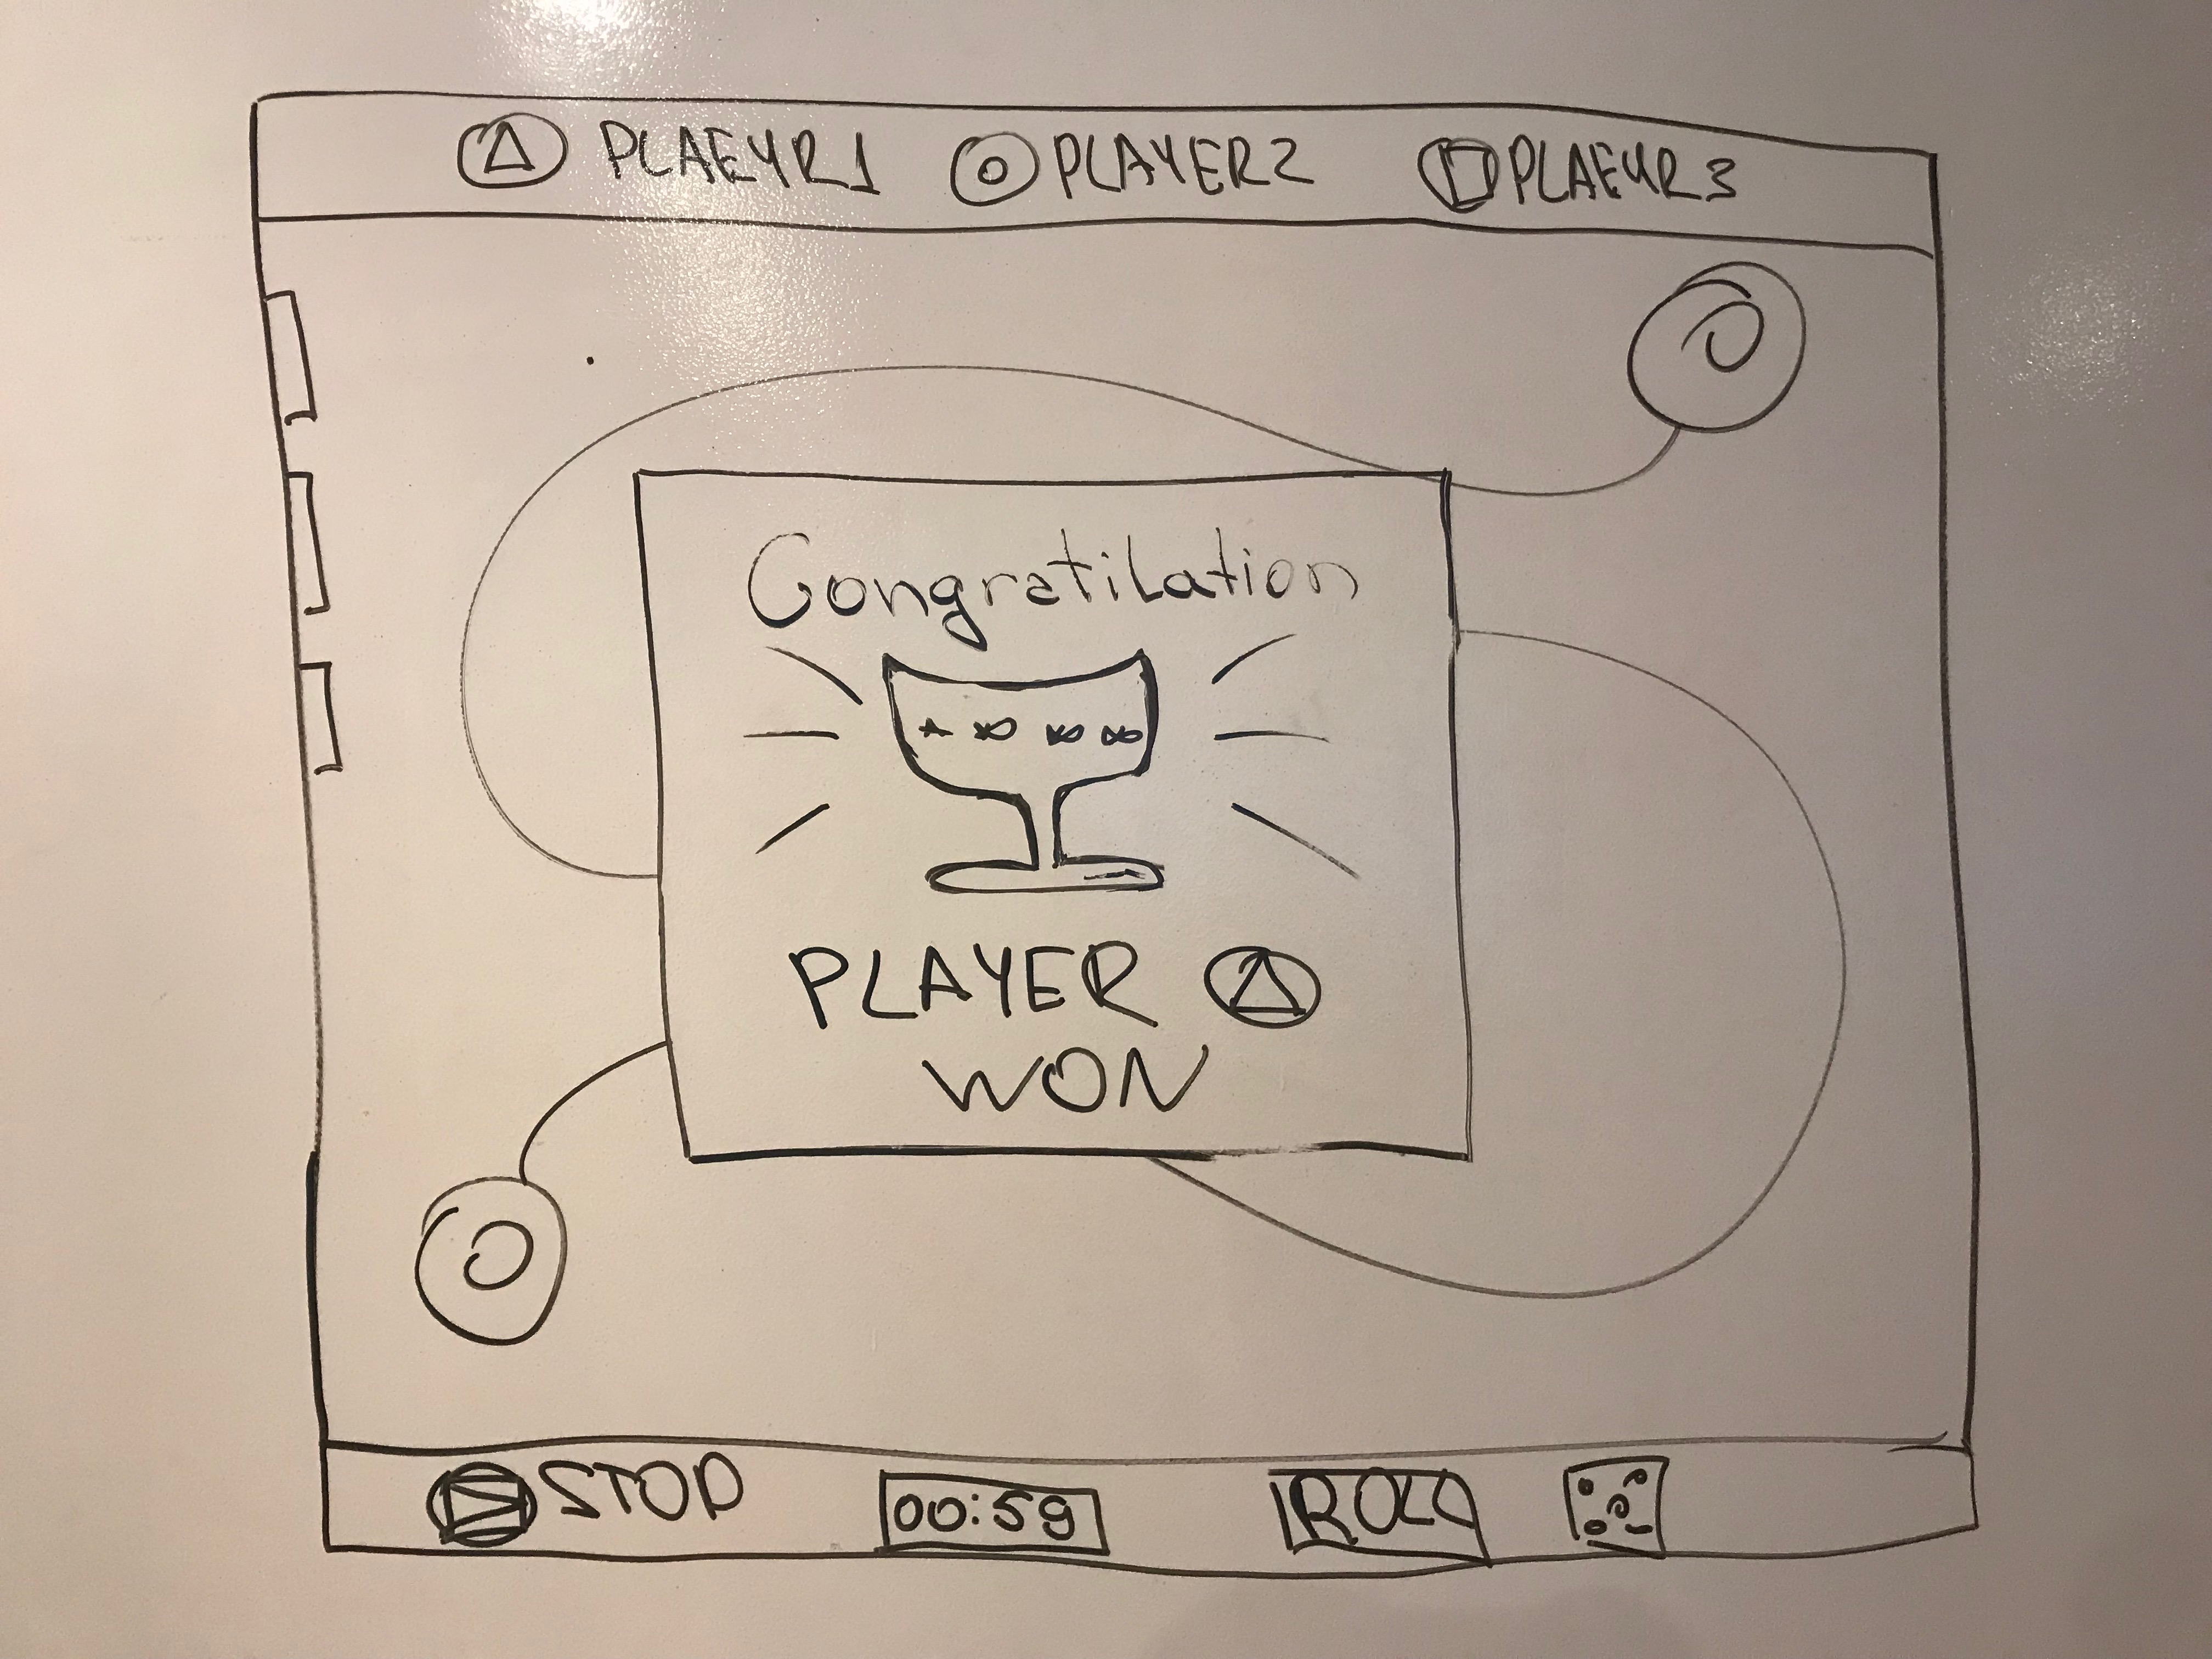 PLAEYR1 PLAYER2 PLAEYR3
Congratilation
PLAYER
WON
STOP 00:59 ROLL